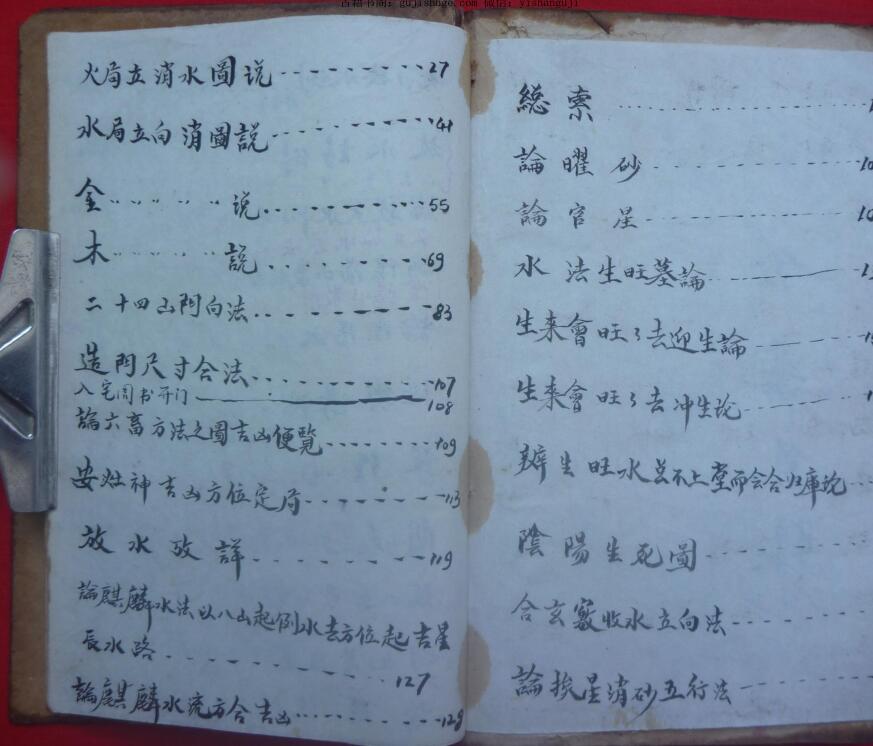 古籍书阁：gujishuge.com 微信：yishanguji
火局立消水圖说 27
水局立向消圖説 41
金〃〃〃〃〃说 55
木〃〃〃〃〃説 69
二十四山門向法 83
造門尺寸合法 107
入宅周书开门 108
論六畜方法之圖吉凶便覧 109
安灶神吉凶方位定局 113
放水攷詳 119
論麒麟水法以八山起例水去方位起吉星
長水路 127
論麒麟水流方合吉凶 128
総索
論曜砂
論官星
水法生旺墓論
生來會旺々去迎生論
生來會旺々去冲生论
辨生旺水並不上堂而会合归庫说
陰陽生死圖
合玄竅收水立向法
論挨星消砂五行法